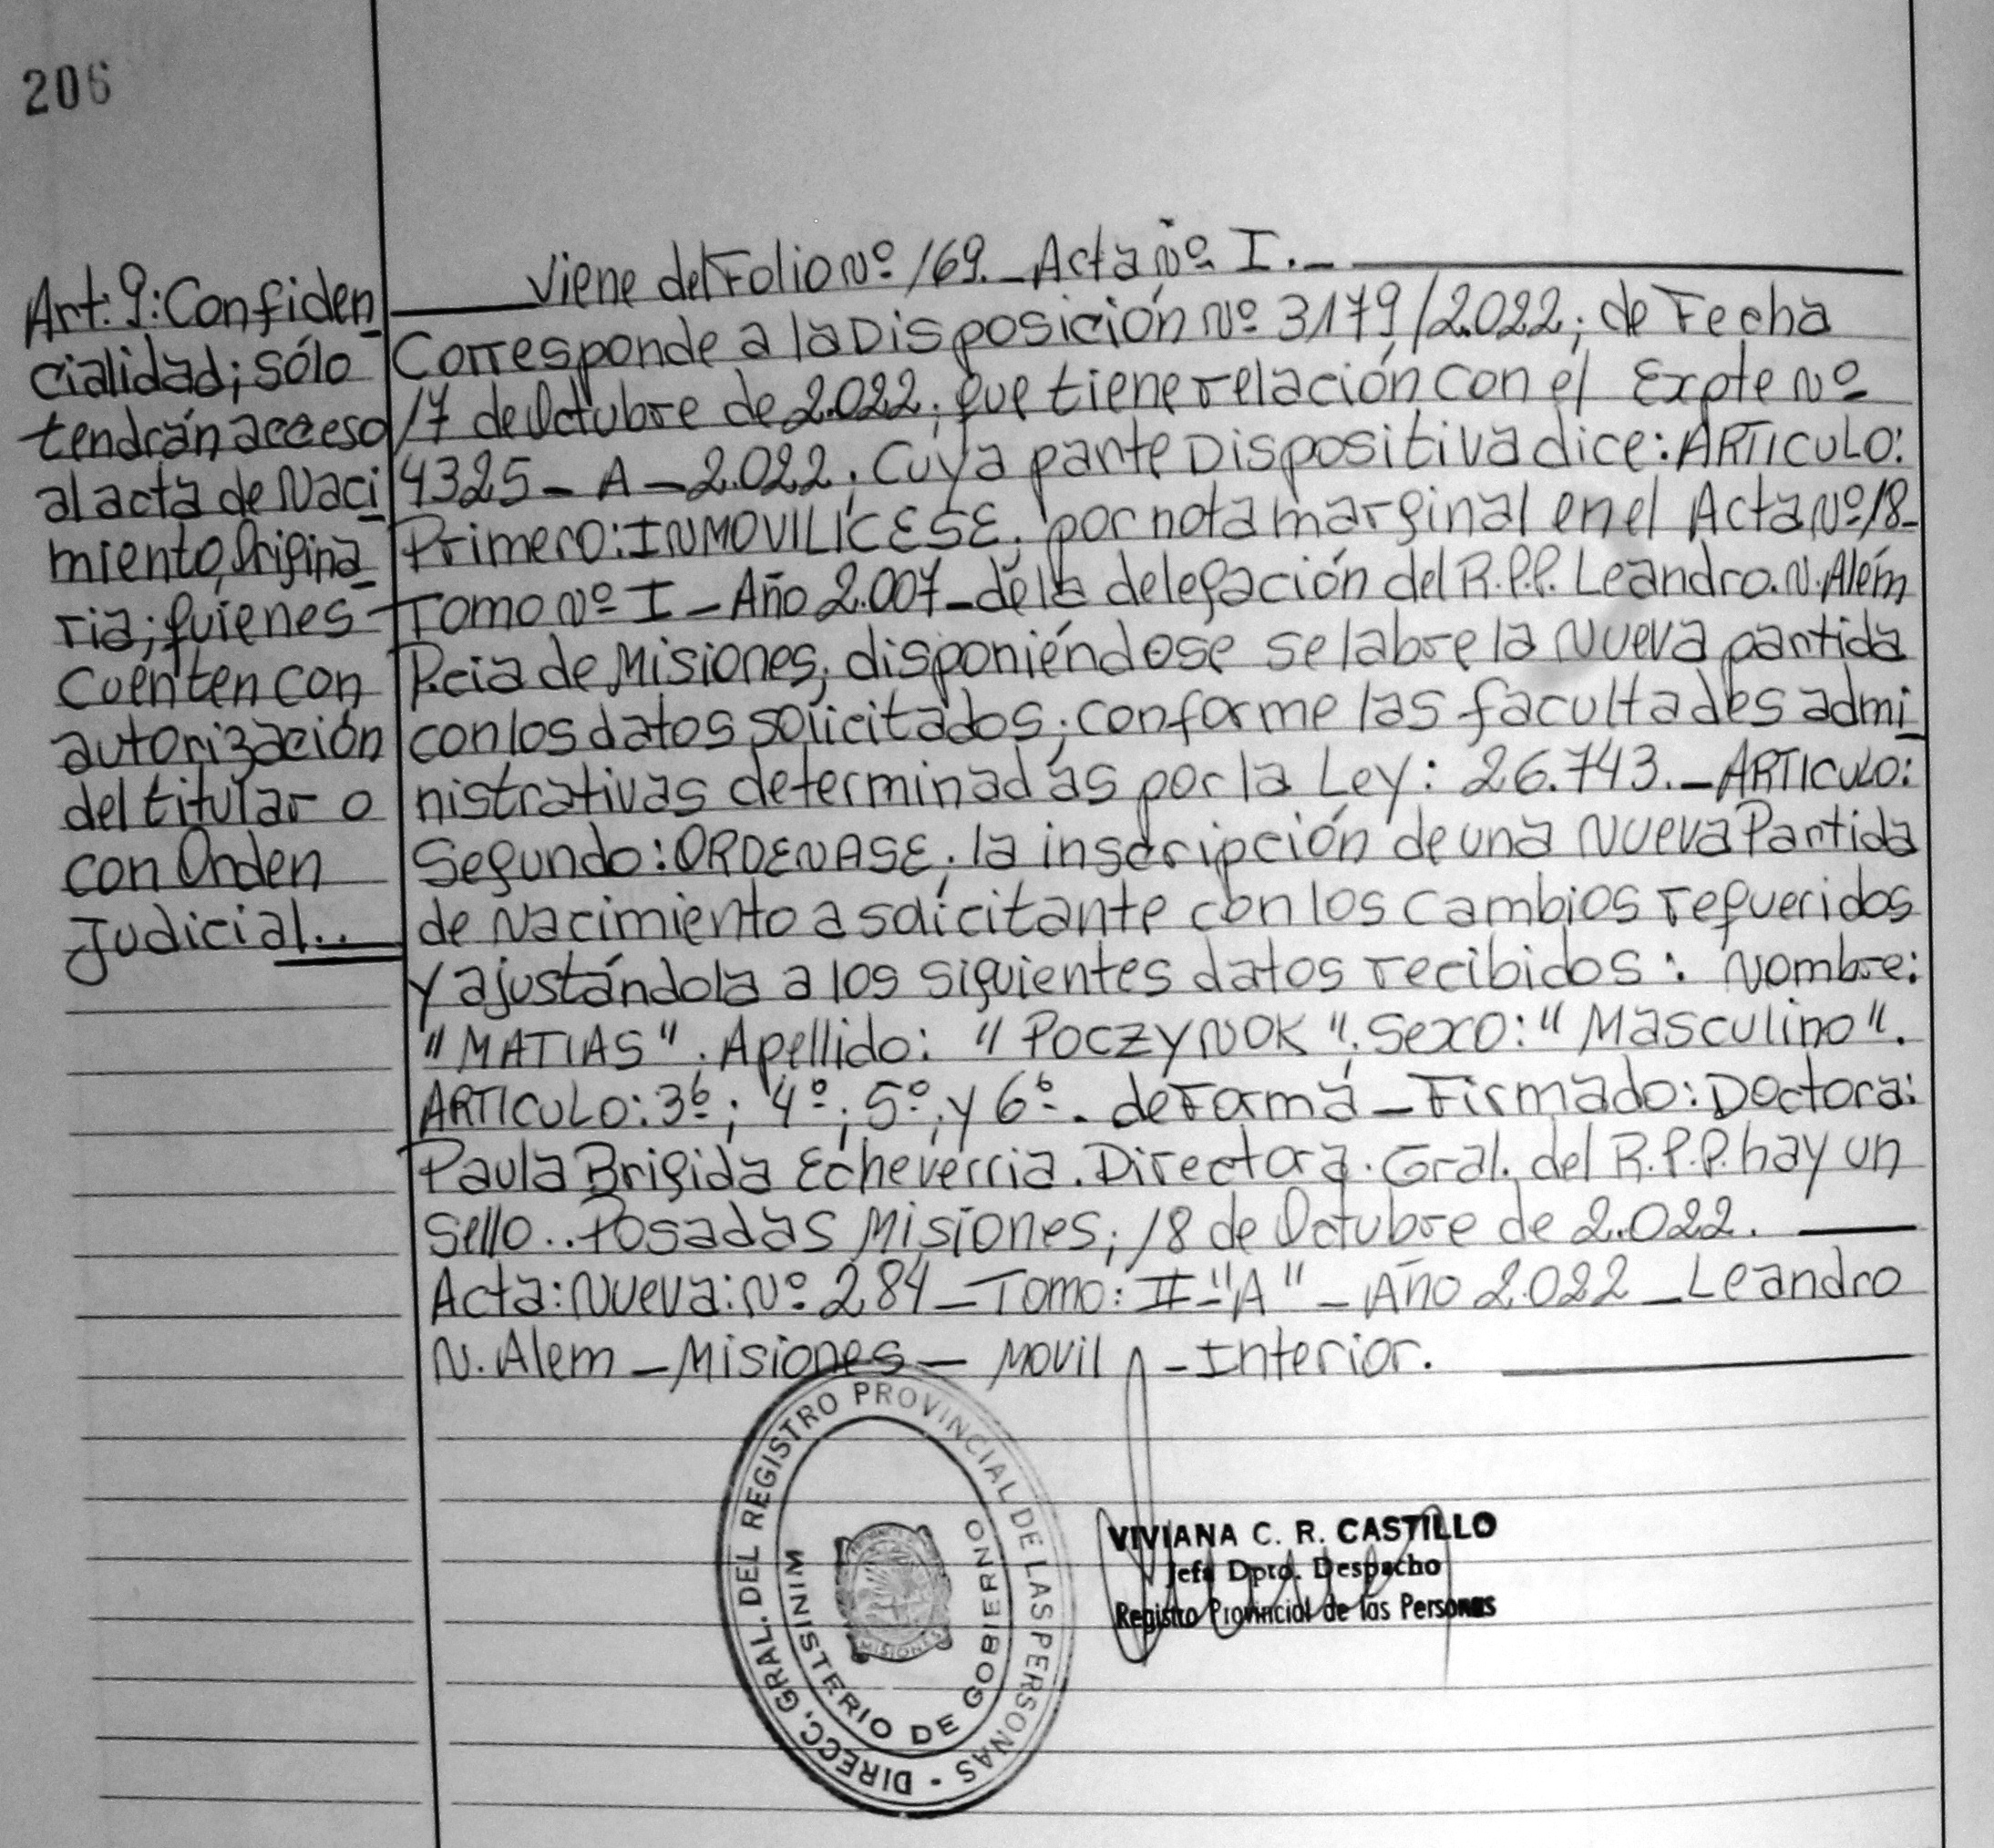 206
Art: 9: Confiden_
cialidad; sólo
tendrán acceso
al acta de Naci_
miento, Origina_
ria; quienes
Cuenten con
autorización
del titular o
con Orden
Judicial..
Viene del Folio Nº 169._ Acta Nº I._
Corresponde a la Disposición Nº 3179/2.022; de Fecha
17 de Octubre de 2.022; que tiene relación con el Expte Nº
4325_ A _ 2.022; Cuya parte Dispositiva dice: ARTICULO:
Primero: INMOVILÍCESE; por nota marginal en el Acta Nº 18_
Tomo Nº I _ Año 2.007_ de la delegación del R.P.P. Leandro. N. Além
Pcia de Misiones; disponiéndose se labre la Nueva partida
con los datos solicitados; conforme las facultades admi_
nistrativas determinadas por la Ley: 26.743._ ARTICULO:
Segundo: ORDENASE; la inscripción de una Nueva Partida
de Nacimiento a solicitante con los cambios requeridos
y ajustándola a los siguientes datos recibidos: Nombre:
"MATIAS". Apellido: "POCZYNOK". Sexo: "Masculino".
ARTICULO: 3º; 4º; 5º; y 6º. de Forma _ Firmado: Doctora:
Paula Brigida Echeverria. Directora. Gral. del R.P.P. hay un
Sello.. Posadas Misiones; 18 de Octubre de 2.022.
Acta: Nueva: Nº 284 _ Tomo: II _ "A" _ Año 2.022 _ Leandro
N. Alem _ Misiones _ Movil _ Interior.
DIRECC. GRAL. DEL REGISTRO PROVINCIAL DE LAS PERSONAS -
MINISTERIO DE GOBIERNO
MISIONES
VIVIANA C. R. CASTILLO
Jefa Dpto. Despacho
Registro Provincial de las Personas